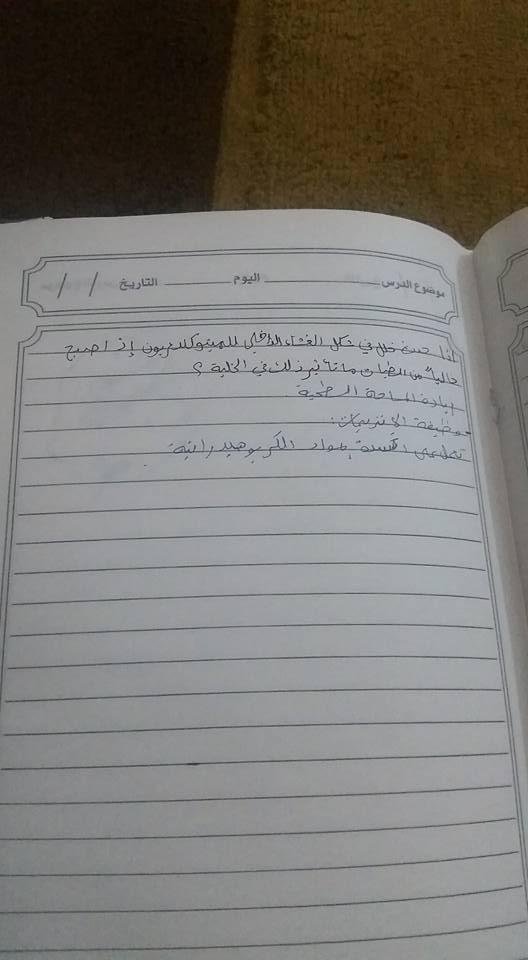 موضوع الدرس اليوم التاريخ / /
لقا حدث خلل في شكل الغشاء الداخلي للميتوكندريون إذ اصبح
خالياً من الطيات ما تأثير ذلك في الخلية ؟
المساحة السطحية
وظيفة الانزيمات :
بمواد الكربوهيدراتية